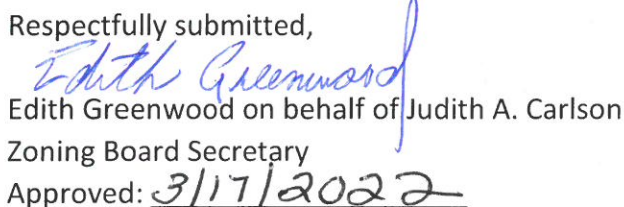 Respectfully submitted,
Edith Greenwood
Edith Greenwood on behalf of Judith A. Carlson
Zoning Board Secretary
Approved: 3/17/2022